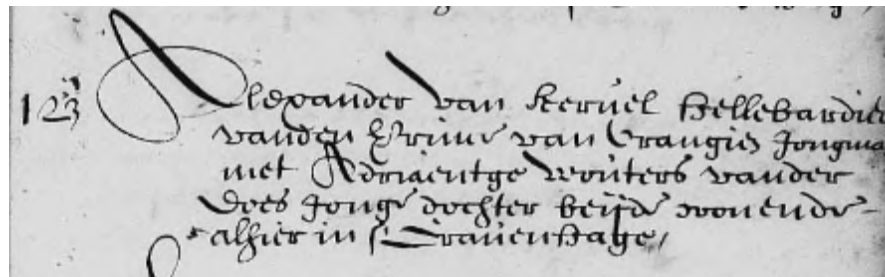 123 Alexander van Keruel Hellebardier
vanden Prince van Orangien Jongma
met Adriaentge Wouters vander
Does Jonge dochter beijde wonende
alhier in s'Grauenhage,